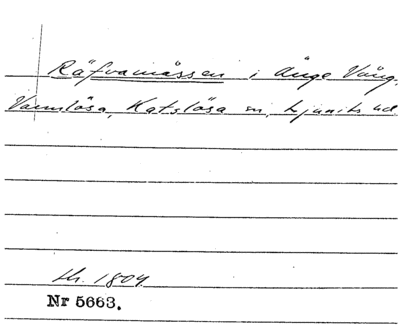 Räfvamåssen i Änge Vång,
Vannlösa, Katslösa sn, Ljunits hd
th. 1804
Nr 5663.